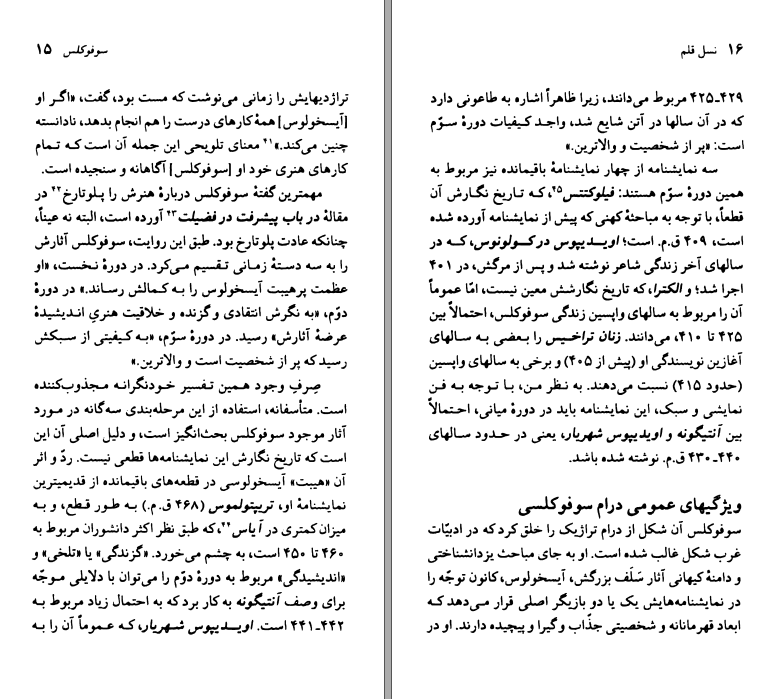 سوفوکلس ۱۵
تراژدیهایش را زمانی می‌نوشت که مست بود، گفت، «اگر او
[آیسخولوس] همهٔ کارهای درست را هم انجام بدهد، نادانسته
چنین می‌کند.»۲۱ معنای تلویحی این جمله آن است که تمام
کارهای هنری خود او [سوفوکلس] آگاهانه و سنجیده است.
مهمترین گفتهٔ سوفوکلس دربارهٔ هنرش را پلوتارخ۲۲ در
مقالهٔ در باب پیشرفت در فضیلت۲۳ آورده است، البته نه عیناً،
چنانکه عادت پلوتارخ بود. طبق این روایت، سوفوکلس آثارش
را به سه دستهٔ زمانی تقسیم می‌کرد. در دورهٔ نخست، «او
عظمت پرهیبت آیسخولوس را به کمالش رساند.» در دورهٔ
دوّم، «به نگرش انتقادی وگزنده و خلاقیت هنریِ اندیشیدهٔ
عرضهٔ آثارش» رسید. در دورهٔ سوّم، «به کیفیتی از سبکش
رسید که پر از شخصیت است و والاترین.»
صِرفِ وجود همین تفسیر خودنگرانه مجذوب‌کننده
است. متأسفانه، استفاده از این مرحله‌بندی سه‌گانه در مورد
آثار موجود سوفوکلس بحث‌انگیز است، و دلیل اصلی آن این
است که تاریخ نگارش این نمایشنامه‌ها قطعی نیست. ردّ و اثر
آن «هیبت» آیسخولوسی در قطعه‌های باقیمانده از قدیمیترین
نمایشنامهٔ او، تریپتولموس (۴۶۸ ق.م.) به طور قطع، و به
میزان کمتری در آیاس۲۴، که طبق نظر اکثر دانشوران مربوط به
۴۶۰ تا ۴۵۰ است، به چشم می‌خورد. «گزندگی» یا «تلخی» و
«اندیشیدگی» مربوط به دورهٔ دوّم را می‌توان با دلایلی موجّه
برای وصف آنتیگونه به کار برد که به احتمال زیاد مربوط به
۴۴۱ـ۴۴۲ است. اویدیپوس شهریار، که عموماً آن را به
۱۶ نسل قلم
۴۲۵ـ۴۲۹ مربوط می‌دانند، زیرا ظاهراً اشاره به طاعونی دارد
که در آن سالها در آتن شایع شد، واجد کیفیات دورهٔ سوّم
است: «پر از شخصیت و والاترین.»
سه نمایشنامه از چهار نمایشنامهٔ باقیمانده نیز مربوط به
همین دورهٔ سوّم هستند: فیلوکتتس۲۵، که تاریخ نگارش آن
قطعاً، با توجه به مباحثهٔ کهنی که پیش از نمایشنامه آورده شده
است، ۴۰۹ ق.م. است؛ اویدیپوس در کولونوس، که در
سالهای آخر زندگی شاعر نوشته شد و پس از مرگش، در ۴۰۱
اجرا شد؛ و الکترا، که تاریخ نگارشش معین نیست، امّا عموماً
آن را مربوط به سالهای واپسین زندگی سوفوکلس، احتمالاً بین
۴۲۵ تا ۴۱۰، می‌دانند. زنان تراخیس را بعضی به سالهای
آغازین نویسندگی او (پیش از ۴۰۵) و برخی به سالهای واپسین
(حدود ۴۱۵) نسبت می‌دهند. به نظر من، با توجه به فن
نمایشی و سبک، این نمایشنامه باید در دورهٔ میانی، احتمالاً
بین آنتیگونه و اویدیپوس شهریار، یعنی در حدود سالهای
۴۳۰ـ۴۴۰ ق.م. نوشته شده باشد.
ویژگیهای عمومی درام سوفوکلسی
سوفوکلس آن شکل از درام تراژیک را خلق کرد که در ادبیّات
غرب شکل غالب شده است. او به جای مباحث یزدانشناختی
و دامنهٔ کیهانی آثار سَلَف بزرگش، آیسخولوس، کانون توجّه را
در نمایشنامه‌هایش یک یا دو بازیگر اصلی قرار می‌دهد که
ابعاد قهرمانانه و شخصیتی جذّاب وگیرا و پیچیده دارند. او در